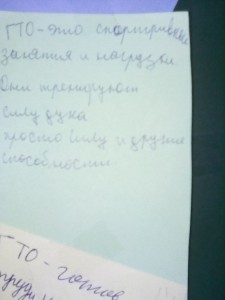 ГТО - это спортивные
занятия и нагрузки
Они тренируют
силу духа
просто силу и другие
способности
ГТО - готов
труду